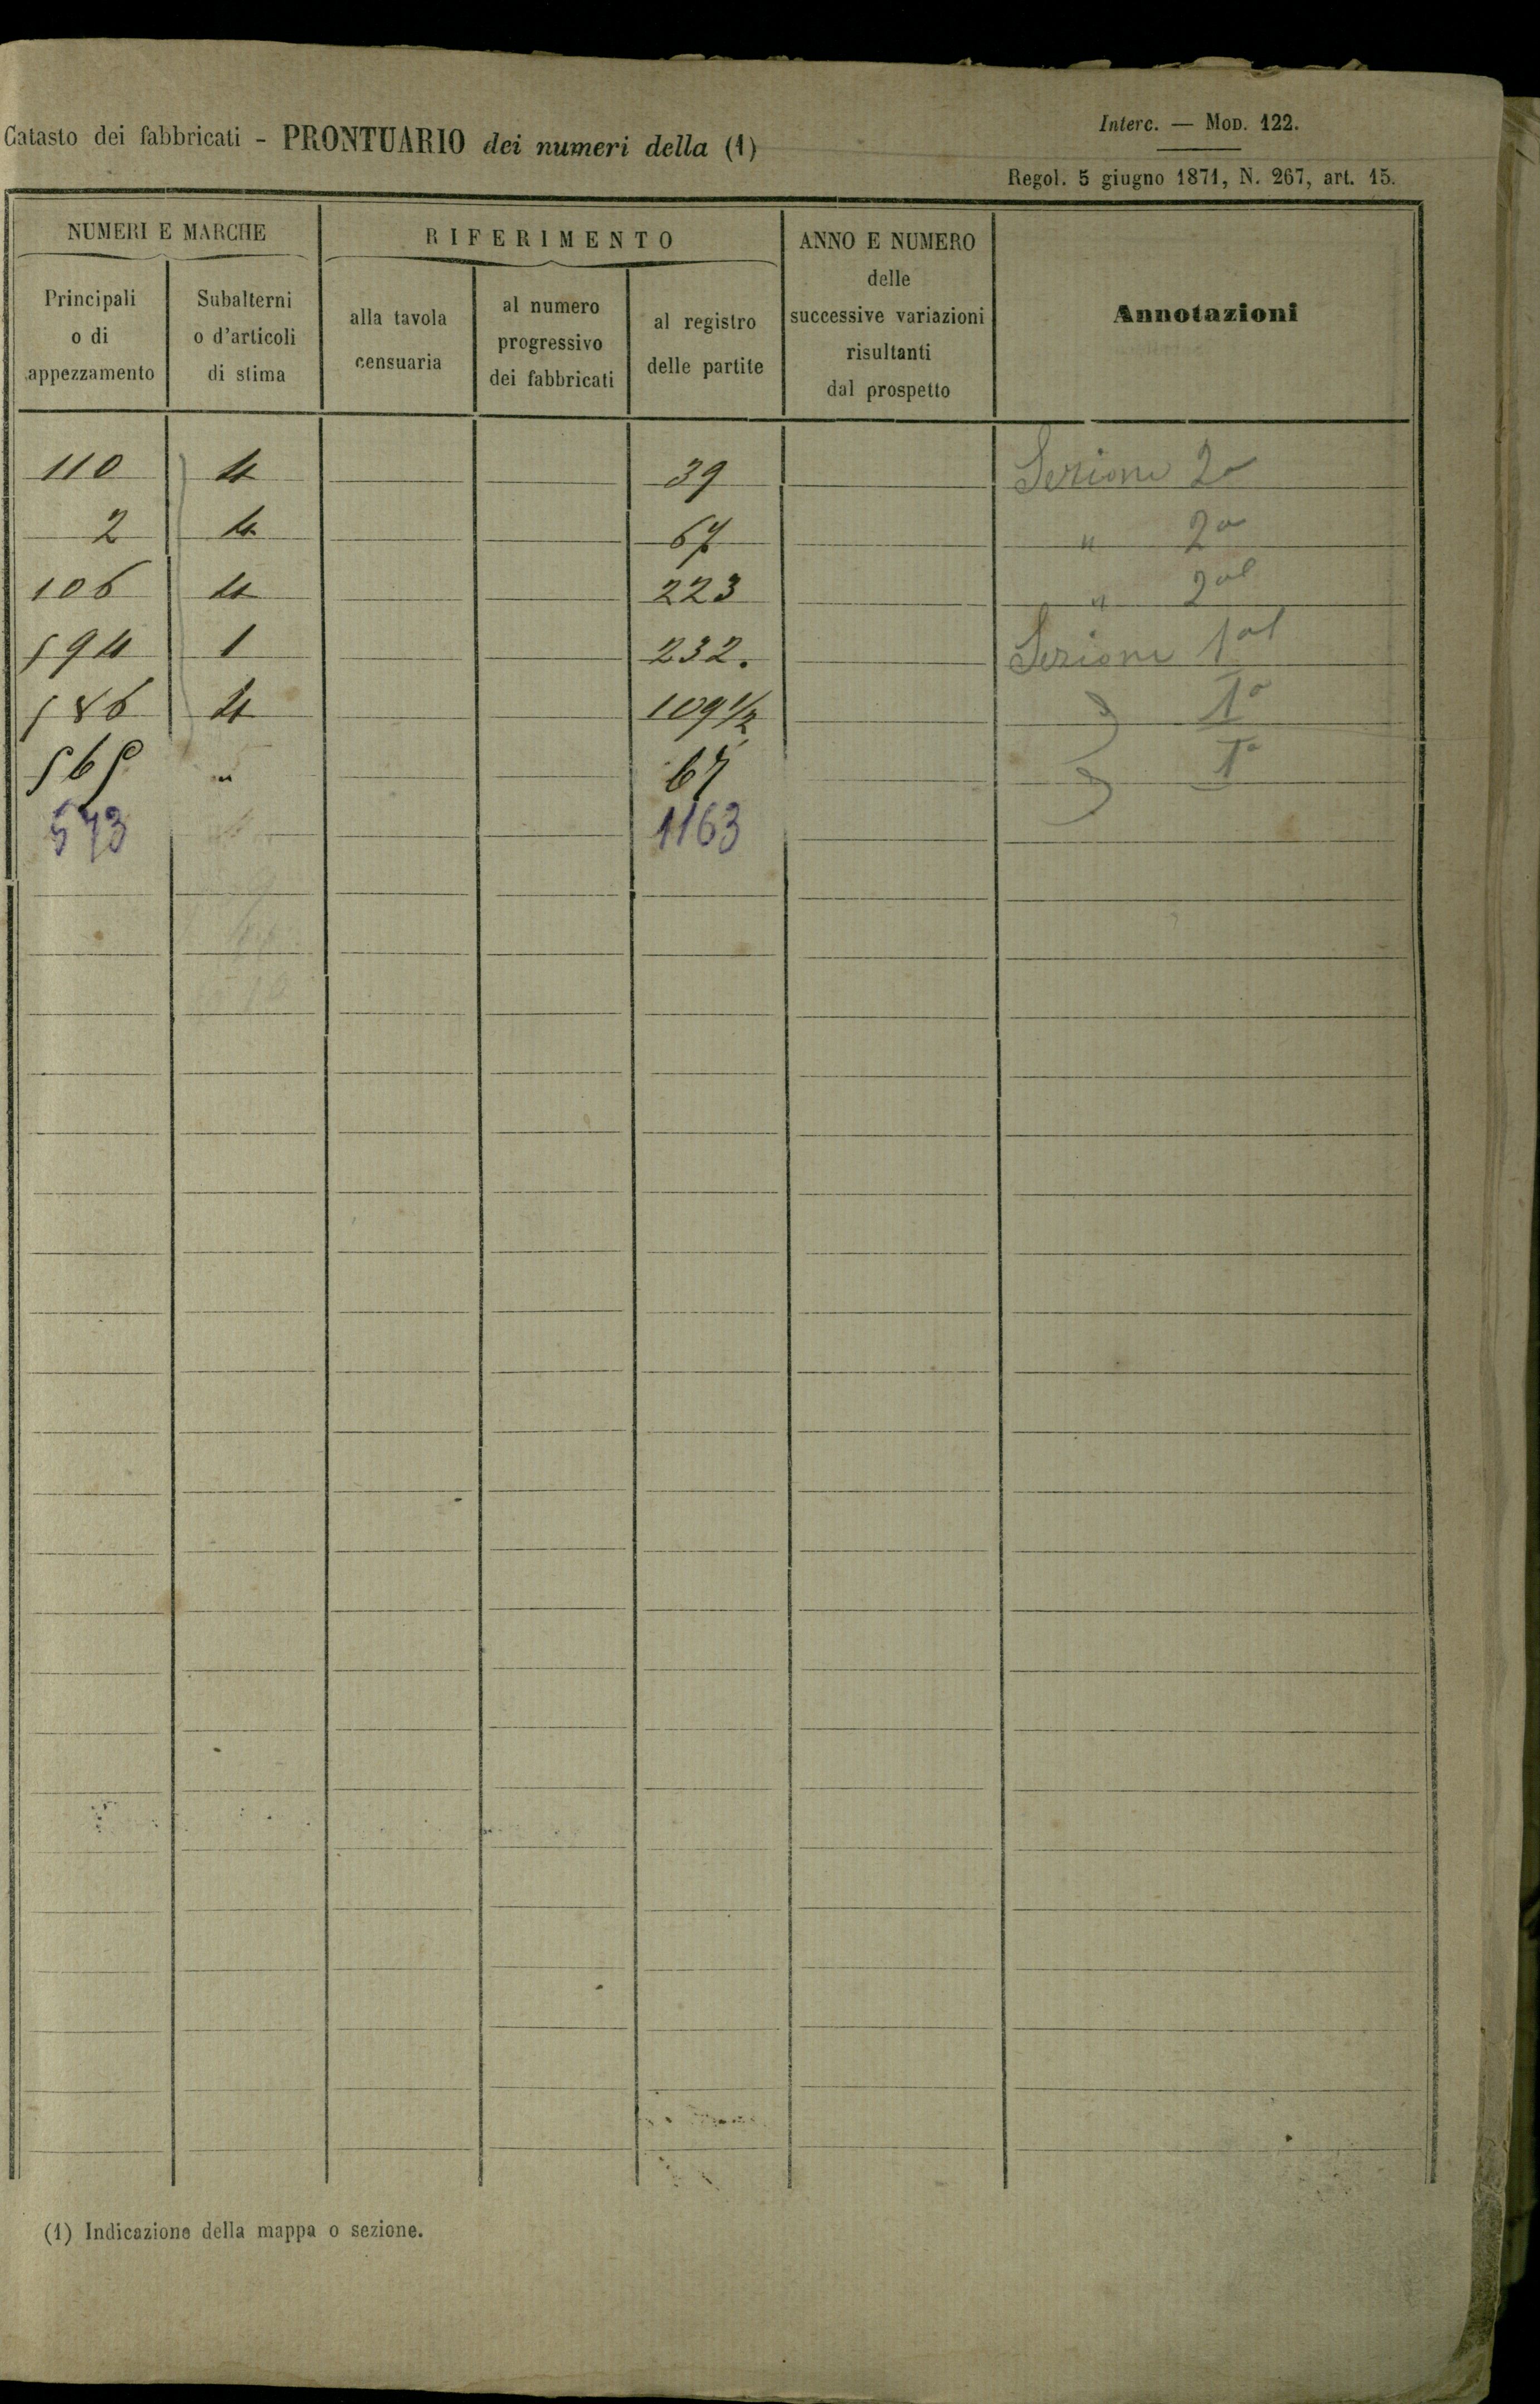 Catasto dei fabbricati - PRONTUARIO dei numeri della (1)
Interc. — Mod. 122.
Regol. 5 giugno 1871, N. 267, art. 15.
NUMERI E MARCHE
RIFERIMENTO
ANNO E NUMERO
delle
successive variazioni
risultanti
dal prospetto
Annotazioni
Principali
o di
appezzamento
Subalterni
o d'articoli
di stima
alla tavola
censuaria
al numero
progressivo
dei fabbricati
al registro
delle partite
110 4 39 Sezione 2a
2 4 67 " 2a
106 4 223 " 2a
594 1 232. Sezione 1a
586 4 109 1/2 1a
565 " 67 1a
573 1163
(1) Indicazione della mappa o sezione.